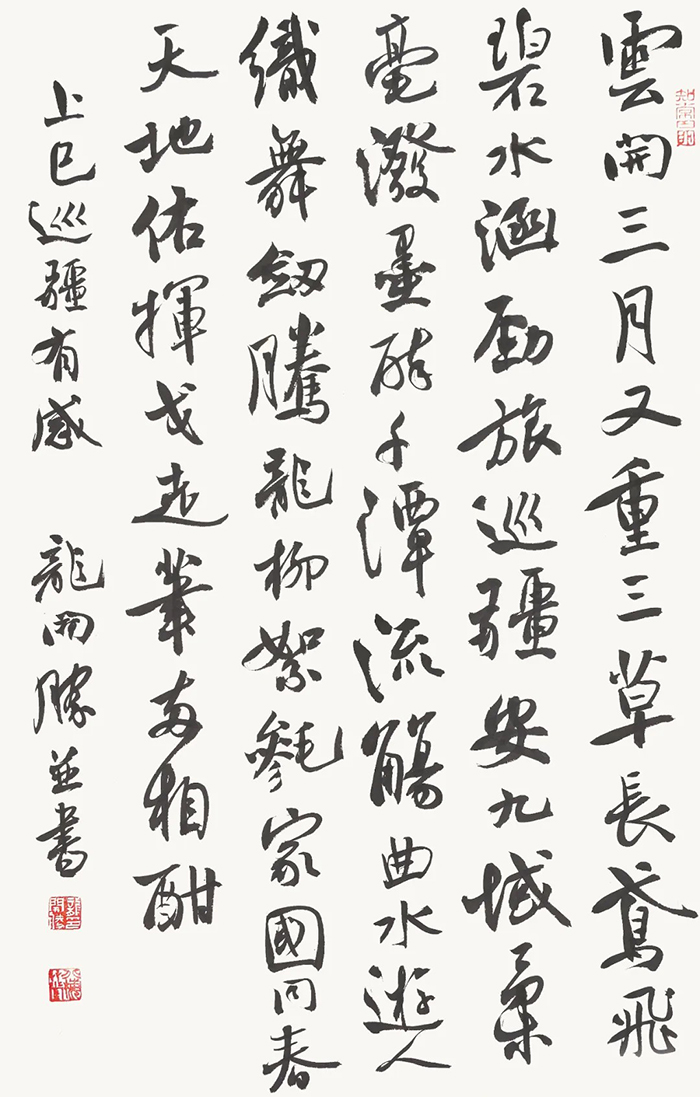 雲開三月又重三草長鳶飛
碧水涵勁旅巡疆安九域
毫潑墨醉千潭流觴曲水遊人
織舞劍騰龍柳絮毿家國同春
天地佑揮戈走筆兩相酣
上巳巡疆有感 龍開勝並書